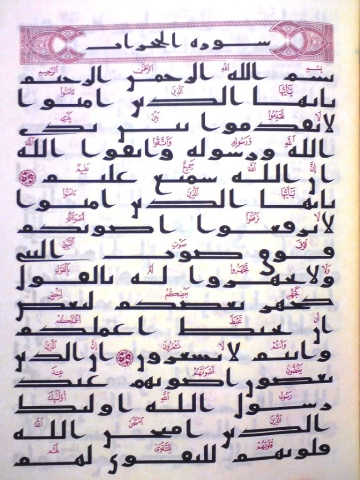 سورة الحجرات
بسم الله الرحمن الرحيم
يايها الذين امنوا
لا تقدموا بين يدي
الله ورسوله واتقوا الله
ان الله سميع عليم
يايها الذين امنوا
لا ترفعوا اصوتكم
فوق صوت النبي
ولا تجهروا له بالقول
كجهر بعضكم لبعض
ان تحبط اعملكم
وانتم لا تشعرون ان الذين
يغضون اصوتهم عند
رسول الله اوليك
الذين امتحن الله
قلوبهم للتقوى لهم